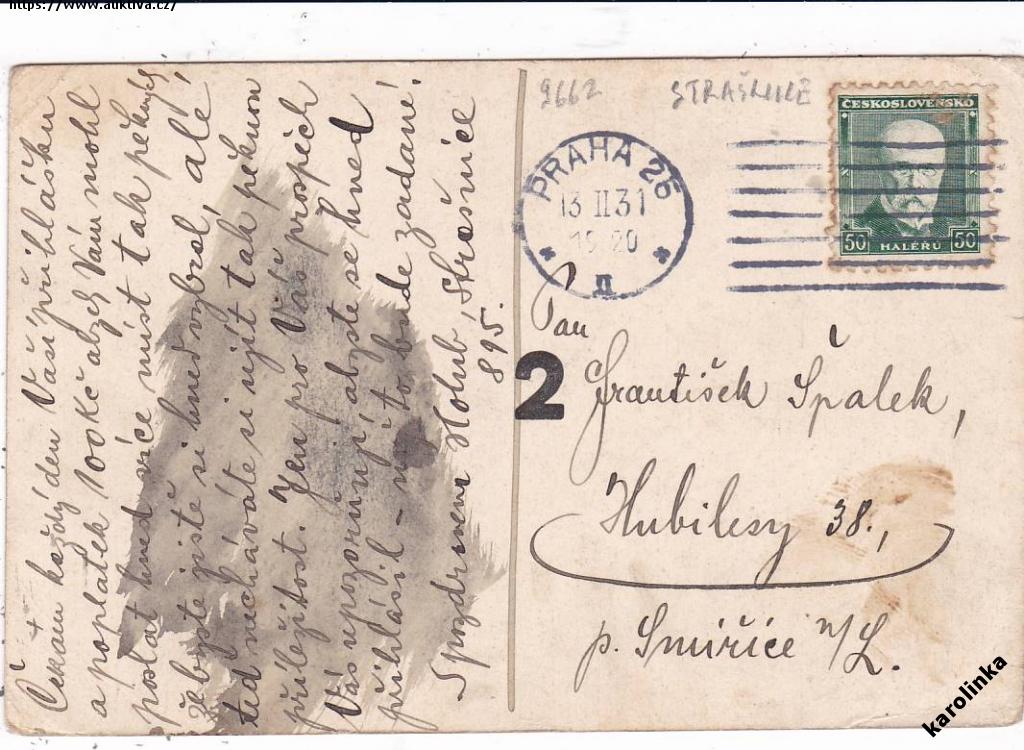 https://www.auktiva.cz/
Čekám každý den Vaší přihlášku
a poplatek 100Kč abych Vám mohl
poslat hned více míst tak pěkných
žebyste jistě si hned vybral, ale
teď necháváte si ujít tak pěknou
příležitost. Jen pro Váš prospěch
Vás upozorňuji abyste se hned
přihlásil – než to bude zadané!
S pozdravem Holub, Strašnice
895.
9662 STRAŠNICE
PRAHA 26
13 II 31
20
II
ČESKOSLOVENSKO
50 HALÉŘŮ 50
2
Pan
František Špalek,
Hubilesy 38.,
p. Smiřice n/L.
karolinka